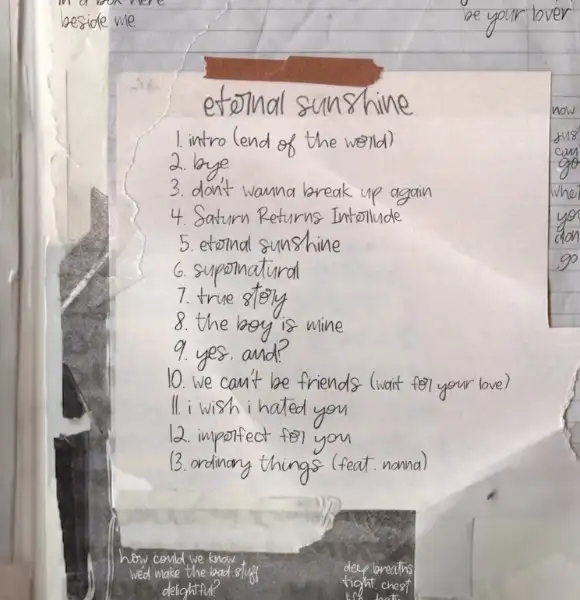 in a box here
beside me
be your lover
eternal sunshine
1. intro (end of the world)
2. bye
3. don't wanna break up again
4. Saturn Returns Interlude
5. eternal sunshine
6. supernatural
7. true story
8. the boy is mine
9. yes, and?
10. we can't be friends (wait for your love)
11. i wish i hated you
12. imperfect for you
13. ordinary things (feat. nonna)
now
go
you
don
go
how could we know
we'd make the bad stuff
delightful?
deep breaths
tight chest